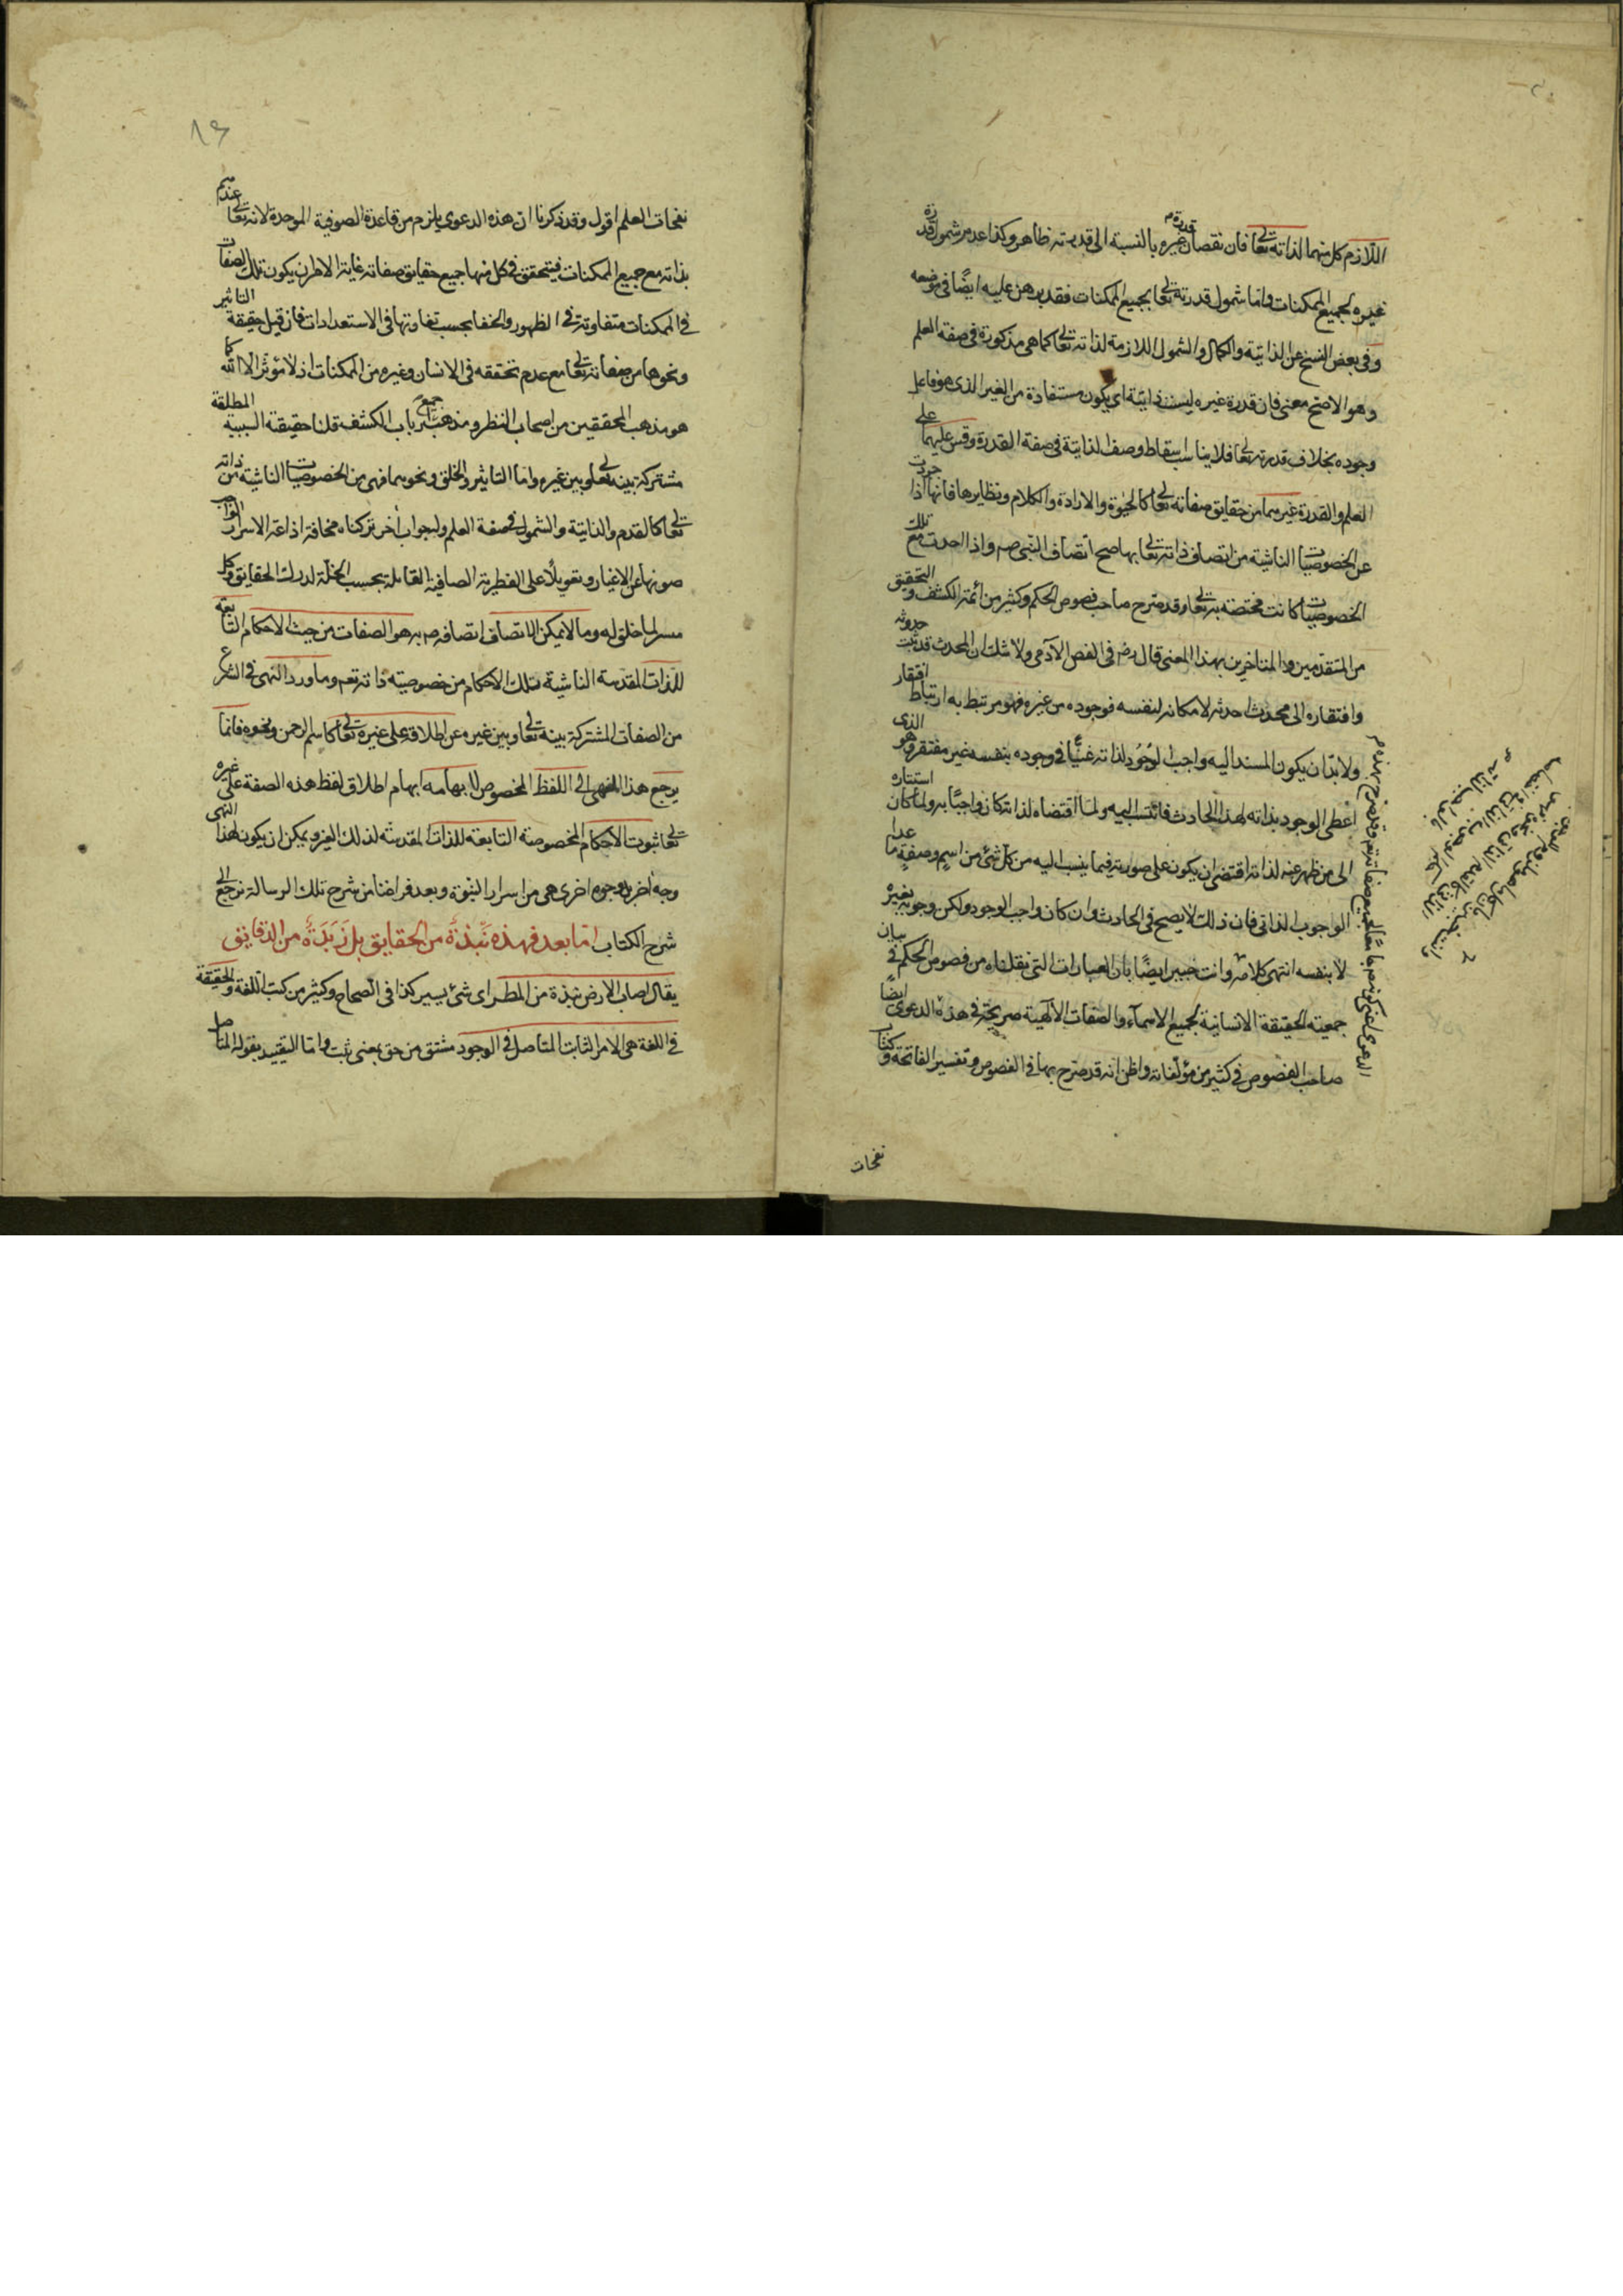 اللازم كل منهما لذاته تعالى فان نقصان قدرة غيره بالنسبة الى قدرته ظاهر وكذا عدم شمول قدرة
غيره لجميع الممكنات واما شمول قدرته تعالى لجميع الممكنات فقد برهن عليه ايضًا فى موضعه
وفى بعض النسخ عن الذاتية والكمال والشمول اللازمة لذاته تعالى كما هى مذكورة فى صفة العلم
وهو الاصح معنى فان قدرة غيره ليست ذاتية اى يكون مستفادة من الغير الذى هو فاعل
وجوده بخلاف قدرته تعالى فلا يناسب اسقاط وصف الذاتية فى صفة القدرة وقس عليهما على
العلم والقدرة غيرهما من حقايق صفاته تعالى كالحيوة والارادة والكلام ونظايرها فانها اذا جردت
عن الخصوصيات الناشية من اتصاف ذاته تعالى بها صح اتصاف النبى صم واذا اخذت مع تلك
الخصوصيات كانت مختصة به تعالى وقد صرح صاحب فصوص الحكم وكثير من أئمة الكشف والتحقيق
من المتقدمين والمتاخرين بهذا المعنى قال رضه فى الفص الآدمى ولا شك ان المحدث قد ثبت حدوثه
وافتقاره الى محدث احدثه لامكانه لنفسه فوجوده من غيره فهو مرتبط به ارتباط افتقار
ولا بد ان يكون المستند اليه واجب الوجود لذاته غنيًا فى وجوده بنفسه غير مفتقر وهو الذى
اعطى الوجود بذاته لهذا الحادث فانتسب اليه ولما اقتضاه لذاته كان واجبًا به ولما كان استناده
الى من ظهر عنه لذاته اقتضى ان يكون على صورته فيما ينسب اليه من كل شئ من اسم وصفة ما عدا
الوجوب الذاتى فان ذلك لا يصح فى الحادث وان كان واجب الوجود ولكن وجوبه بغيره
لا بنفسه انتهى كلامه وانت خبير ايضًا بان العبارات التى نقلناه من فصوص الحكم فى بيان
جمعية الحقيقة الانسانية لجميع الاسمآء والصفات الآلهية صريحة فى هذه الدعوى ايضًا
صاحب الفصوص فى كثير من مؤلفاته واظن انه قد صرح بها فى الفصوص وتفسير الفاتحة وكتاب
نفحات
١٩
نفحات العلم اقول وقد ذكرنا ان هذه الدعوى يلزم من قاعدة الصوفية الموحدة لانه تعالى عندهم
بذاته مع جميع الممكنات فيتحقق فى كل منها جميع حقايق صفاته غاية الامر ان يكون تلك الصفات
فى الممكنات متفاوتة فى الظهور والخفا بحسب تفاوتها فى الاستعدادات فان قيل حقيقة التاثير
ونحوها من صفاته تعالى مع عدم تحققه فى الانسان وغيره من الممكنات اذ لا مؤثر الا الله كما
هو مذهب المحققين من اصحاب النظر ومذهب جميع ارباب الكشف قلنا حقيقة السببية المطلقة
مشتركة بينه تعالى وبين غيره واما التاثير والخلق ونحوهما فهى من الخصوصيات الناشية من ذاته
تعالى كالقدم والذاتية والشمول فى صفة العلم ولجواب أخر تركناه مخافة اذاعة الاسرار
صونها عن الاغيار وتعويلًا على الفطرية الصافية القابلة بحسب الجبلة لدرك الحقايق وكل
ميسر لما خلق له وما لا يمكن الاتصاف اتصافه صم به هو الصفات من حيث الاحكام التابعة
للذات المقدسة الناشية تلك الاحكام من خصوصية ذاته تعم وما ورد النهى فى الشرع
من الصفات المشتركة بينه تعالى وبين غيره عن اطلاقه على غيره تعالى كاسم الرحمن ونحوه فانما
يرجع هذا النهى الى اللفظ المخصوص لا يهامه ايهام اطلاق لفظ هذه الصفة على غيره
تعالى ثبوت الاحكام المخصوصة التابعة للذات المقدسة لذلك الغير ويمكن ان يكون لهذا النهى
وجه أخر بل وجوه اخرى هى من اسرار النبوة وبعد فراغنا من شرح تلك الرسالة نرجع الى
شرح الكتاب اما بعد فهذه نُبذة من الحقايق بل زبدة من الدقايق
يقال اصاب الارض نبذة من المطر اى شئ يسير كذا فى الصحاح وكثير من كتب اللغة والحقيقة
فى اللغة هى الامر الثابت المتاصل فى الوجود مشتق من حق بمعنى ثبت واما التقييد بقوله المتاصل